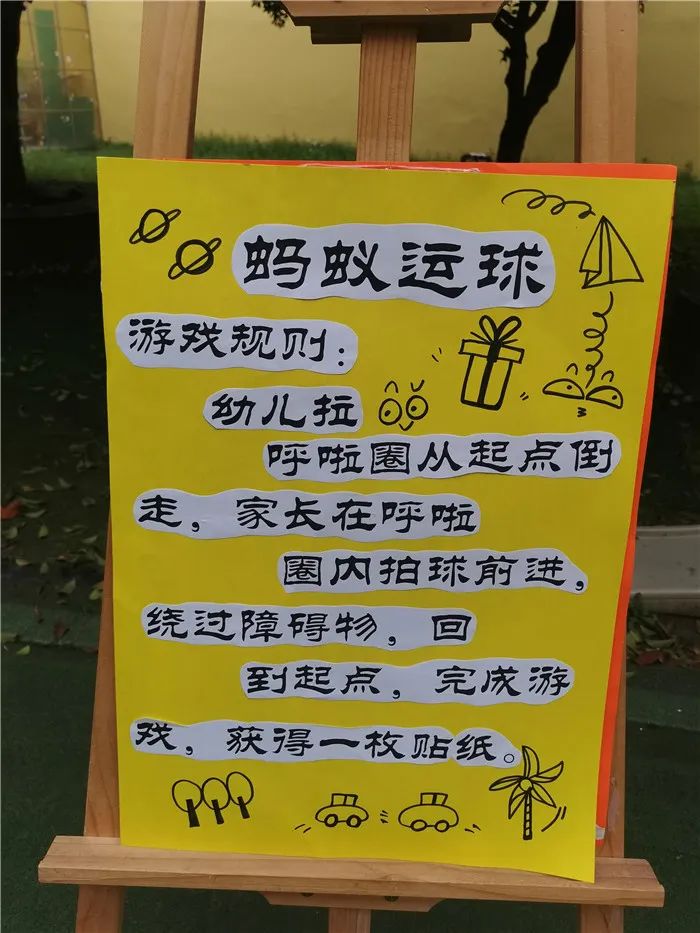 蚂蚁运球
游戏规则：
幼儿拉
呼啦圈从起点倒
走，家长在呼啦
圈内拍球前进，
绕过障碍物，回
到起点，完成游
戏，获得一枚贴纸。